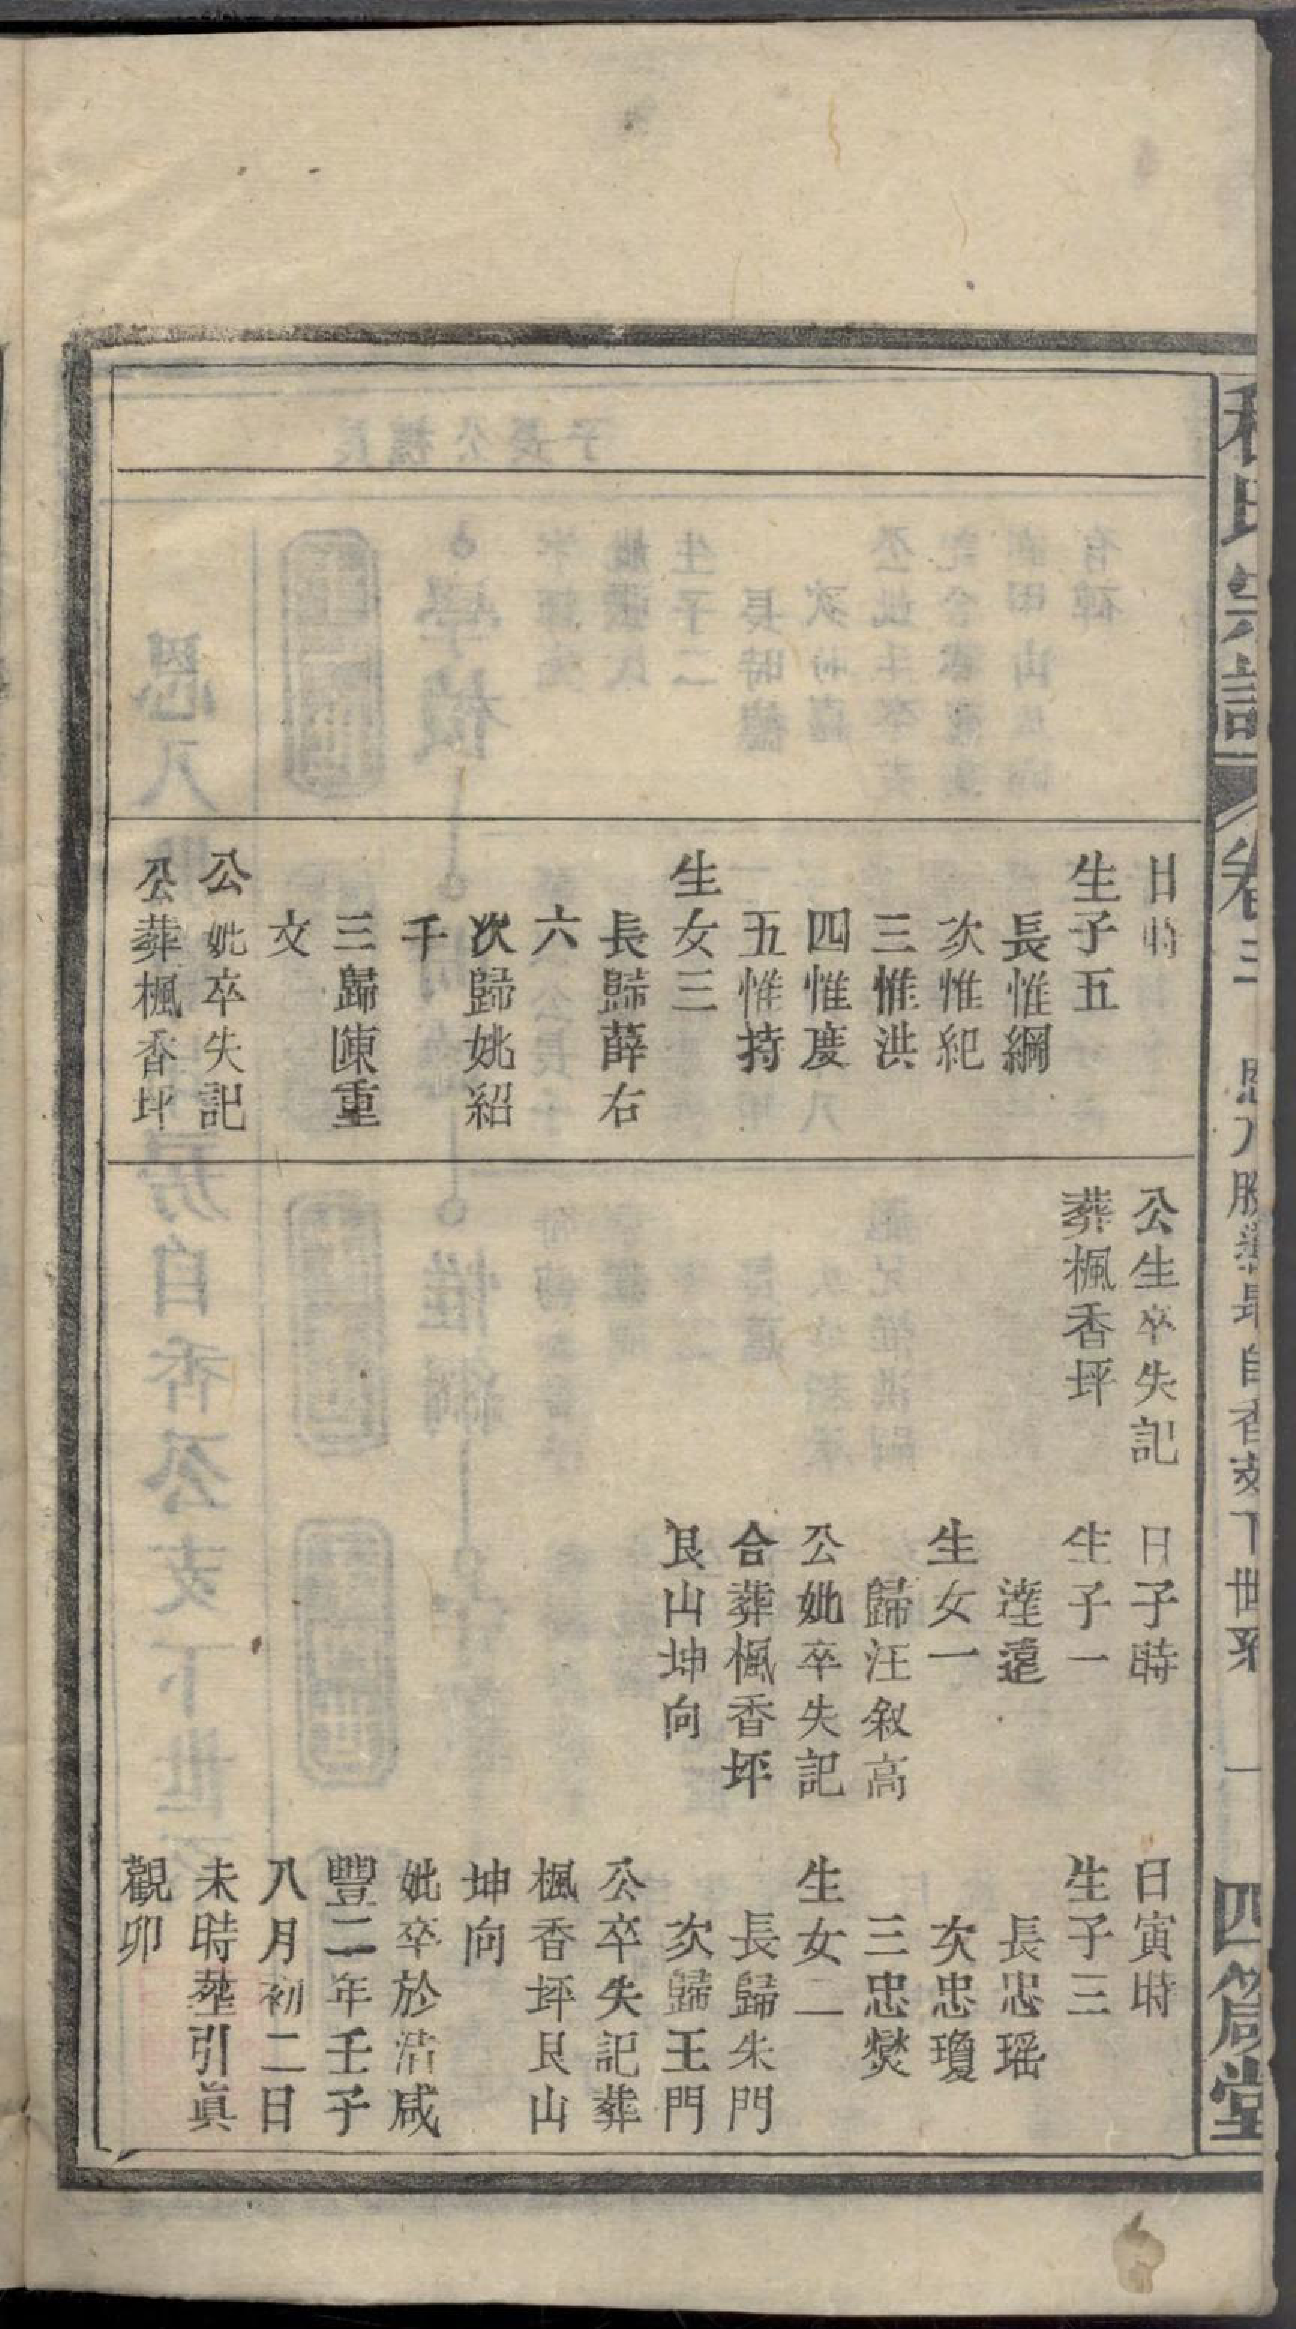 氏宗譜
卷三
自香支下世系
一
四箴堂
日時
生子五
長惟綱
次惟紀
三惟洪
四惟度
五惟持
生女三
長歸薛右
六
次歸姚紹
千
三歸陳重
文
公妣卒失記
公葬楓香坪
公生卒失記
葬楓香坪
日子時
生子一
達遠
生女一
歸汪敘高
公妣卒失記
合葬楓香坪
艮山坤向
日寅時
生子三
長忠瑶
次忠瓊
三忠爕
生女二
長歸朱門
次歸王門
公卒失記葬
楓香坪艮山
坤向
妣卒於清咸
豐二年壬子
八月初二日
未時塟引眞
觀卯